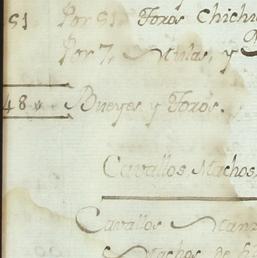 51 Por 51. Toros Chichu
Por 7, Mulas, y
48 Bueyes y Toros.
Cavallos Machos,
Cavallos Mans
Machos de